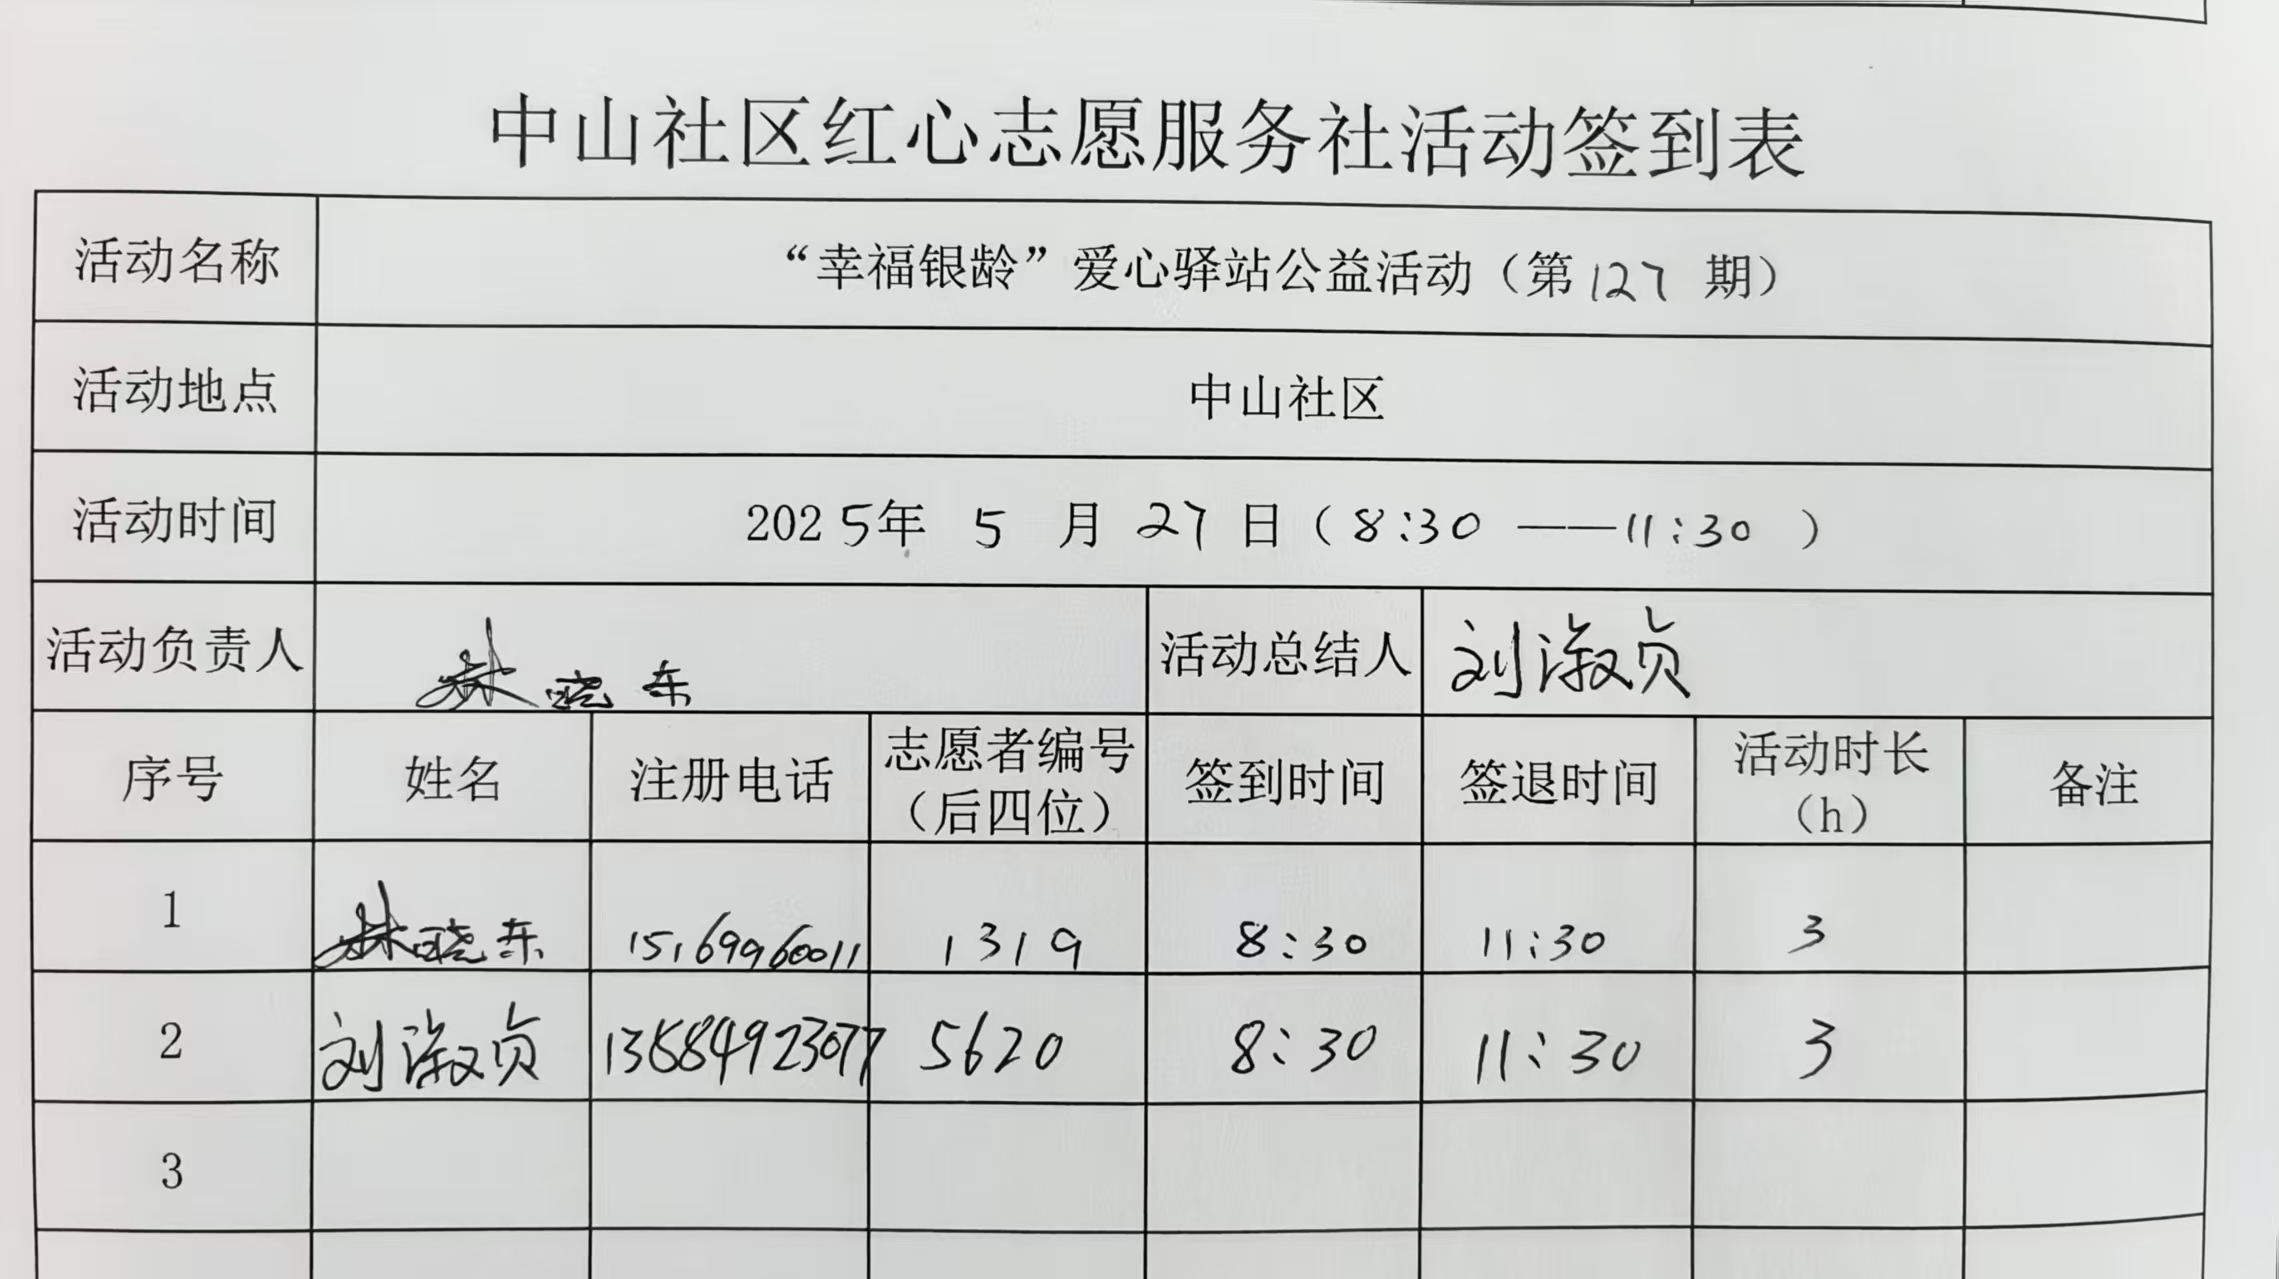 中山社区红心志愿服务社活动签到表
活动名称 “幸福银龄”爱心驿站公益活动（第 127 期）
活动地点 中山社区
活动时间 2025年 5 月 27 日（8:30 ——11:30 ）
活动负责人 林晓东 活动总结人 刘淑贞
序号 姓名 注册电话 志愿者编号（后四位） 签到时间 签退时间 活动时长（h） 备注
1 林晓东 15169960011 1319 8:30 11:30 3
2 刘淑贞 13584923077 5620 8:30 11:30 3
3